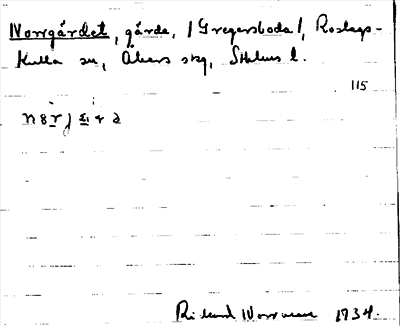 Norrgärdet, gärde, /Gregersboda/, Roslags-
Kulla sn, Åkers skg, Sthlms l.
115
Rikard Norrman 1934.